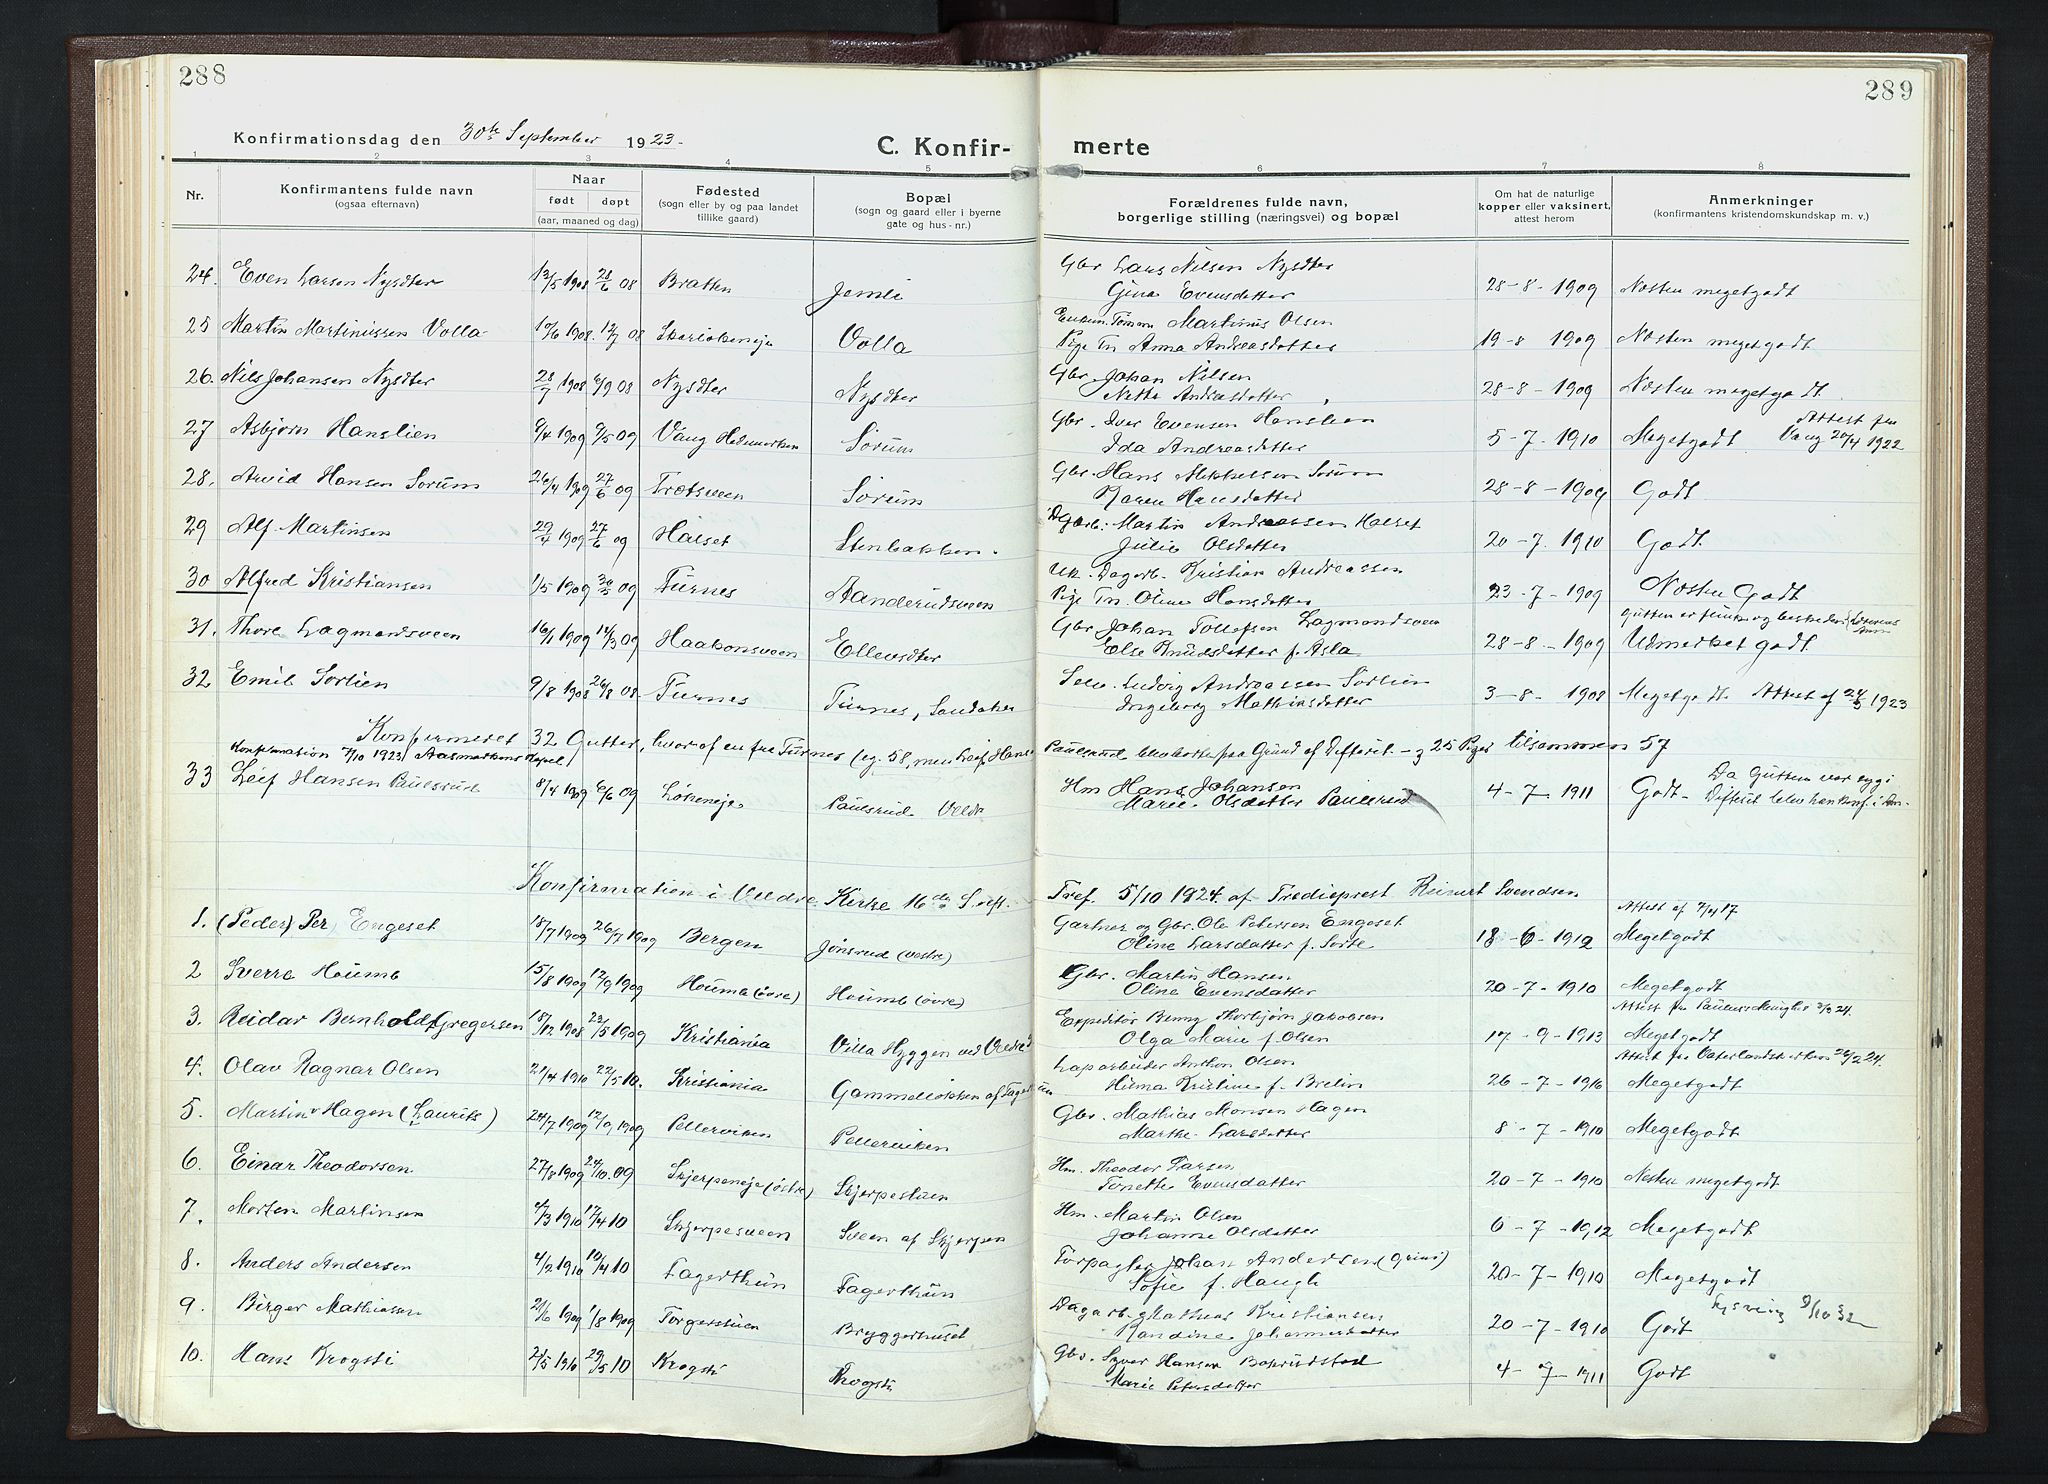 288
289
Konfirmationsdag den 30te September 1923.
C. Konfir- merte
1 2 3 4 5 6 7 8
Nr.
Konfirmantens fulde navn
(ogsaa efternavn)
Naar
født døpt
(aar, maaned og dag)
Fødested
(sogn eller by og paa landet
tillike gaard)
Bopæl
(sogn og gaard eller i byerne
gate og hus-nr.)
Forældrenes fulde navn,
borgerlige stilling (næringsvei) og bopæl
Om hat de naturlige
kopper eller vaksinert,
attest herom
Anmerkninger
(konfirmantens kristendomskundskap m. v.)
24. Even Larsen Nysæter 13/5 1908 28/6 08 Bratten Jemli Gbr Lars Nilsen Nysæter 28-8-1909 Næsten megetgodt
Gina Evensdatter
25 Martin Martinissen Volla 10/6 1908. 12/7 08 Volla Martinus Olsen 19-8 1909 Næsten megetgodt
Pige Tn Anna Andreasdatter
26. Nils Johansen Nysæter 28/7 1908 6/9 08 Nysæter Nysæter Gbr. Johan Nilsen 28-8-1909 Næsten megetgodt.
Nette Andreasdatter
27 Asbjørn Hanslien 9/4 1909 9/5 09 Vang Hedmarken Sørum Gbr. Iver Evensen Hanslien 5-7-1910 Megetgodt. Attest fra
Ida Andreasdatter Vang 20/4 1922
28. Arvid Hansen Sørum 26/4 1909 27/6 09 Trætsveen Sørum Gbr. Hans Mikkelsen Sørum 28-8-1909 Godt
Karen Hansdatter
29 Alf Martinsen 29/4 1909 27/6 09 Halset Stenbakken. Dgarb. Martin Andreassen Halset 20-7-1910 Godt.
Julie Olsdatter
30 Alfred Kristiansen 1/5 1909 30/5 09 Turnes Aanderudsveen Uk. Dagarb. Kristian Andreassen 23-7-1909 Næsten Godt
Pige Tn. Oline Hansdatter
31. Thore Lagmandsveen 16/1 1909 14/3 09 Haakonsveen Ellevsæter Gbr Johan Tollefsen Lagmandsveen 28-8-1909 Udmerket godt.
Else Knudsdatter f. Asla
32 Emil Sørlien 9/8 1908 Turnes Turnes, Ludvig Andreassen Sørlien 3-8-1908 Megetgodt. Attest af 24/5 1923
Ingeborg Mathiasdatter
Konfirmeret 32 Gutter, hvoraf en fra Turnes (eg. 58, men Leif Hansen Paulsrud blev borte paa Grund af Difterit - og 25 Piger tilsammen 57
Konfirmation 7/10 1923 i Aasmarkens Kapel
33 Leif Hansen Paulsrud 8/4 1909 6/6 09 Løkeneje Paulsrud Veldr Hm Hans Johansen 4-7-1911 Godt- Da Gutten var syg i
Marie Olsdatter Paulsrud Difterit blev han konf. i
Konfirmation i Veldre Kirke 16de S. eft. Tref. 5/10 1924. af Trediepræst Reinert Svendsen
1. (Peder) Per Engeset 18/7 1909 26/7 1909 Bergen Jønsrud (vestre) Gartner og Gbr. Ole Petersen Engeset 18-6-1912 Megetgodt
Oline Larsdatter f. Sorte
2 Sverre Houmb 15/8 1909 12/9 1909 Houmb (øvre) Houmb (øvre) Gbr. Martin Hansen 20-7-1910 Megetgodt
Oline Evensdatter
3. Reidar Bernholdt Gregersen 18/12 1908 23/5 1909 Kristiania Villa Hyggen ved Veldre Expeditør Benny Thorbjørn Jakobsen 17-9-1913 Megetgodt
Olga Marie f. Olsen
4. Olav Ragnar Olsen 21/4 1910 22/5 10. Kristiania Gammelløkken af Fagerlun Løparbeider Anthon Olsen 26-7-1916 Megetgodt
Huma Kristine f. Brelin
5. Martin Hagen (Laurits) 24/7 1909 12/9 1909 Pellerviken Pellerviken Gbr. Mathias Monsen Hagen 8-7-1910 Megetgodt
Marthe Larsdatter
6. Einar Theodorsen 27/8 1909 24/10.09 Skjerpeneje (østre) Skjerpestuen Hm. Theodor Larsen 20-7-1910 Næsten megetgodt
Tonette Evensdatter
7. Morten Martinsen 4/3 1910 17/4 10 Skjerpesveen Sveen af Skjerpen Hm. Martin Olsen 6-7-1912 Megetgodt
Johanne Olsdatter
8. Anders Andersen 4/2 1910 10/4 10 Fagerthun Fagerthun Johan Andersen (Grini) 20-7-1910 Megetgodt
Sofie f. Haugli
9. Birger Mathiasen 21/6 1909 1/8 1909 Torgerstuen Bryggerhuset Dagarb. Mathias Kristiansen 20-7-1910 Godt
Randine Johannesdatter
10. Hans Krogsti 2/5 1910 29/5 10 Krogsti Krogsti Gbr. Syver Hansen 4-7-1911 Godt
Marie Petersdatter